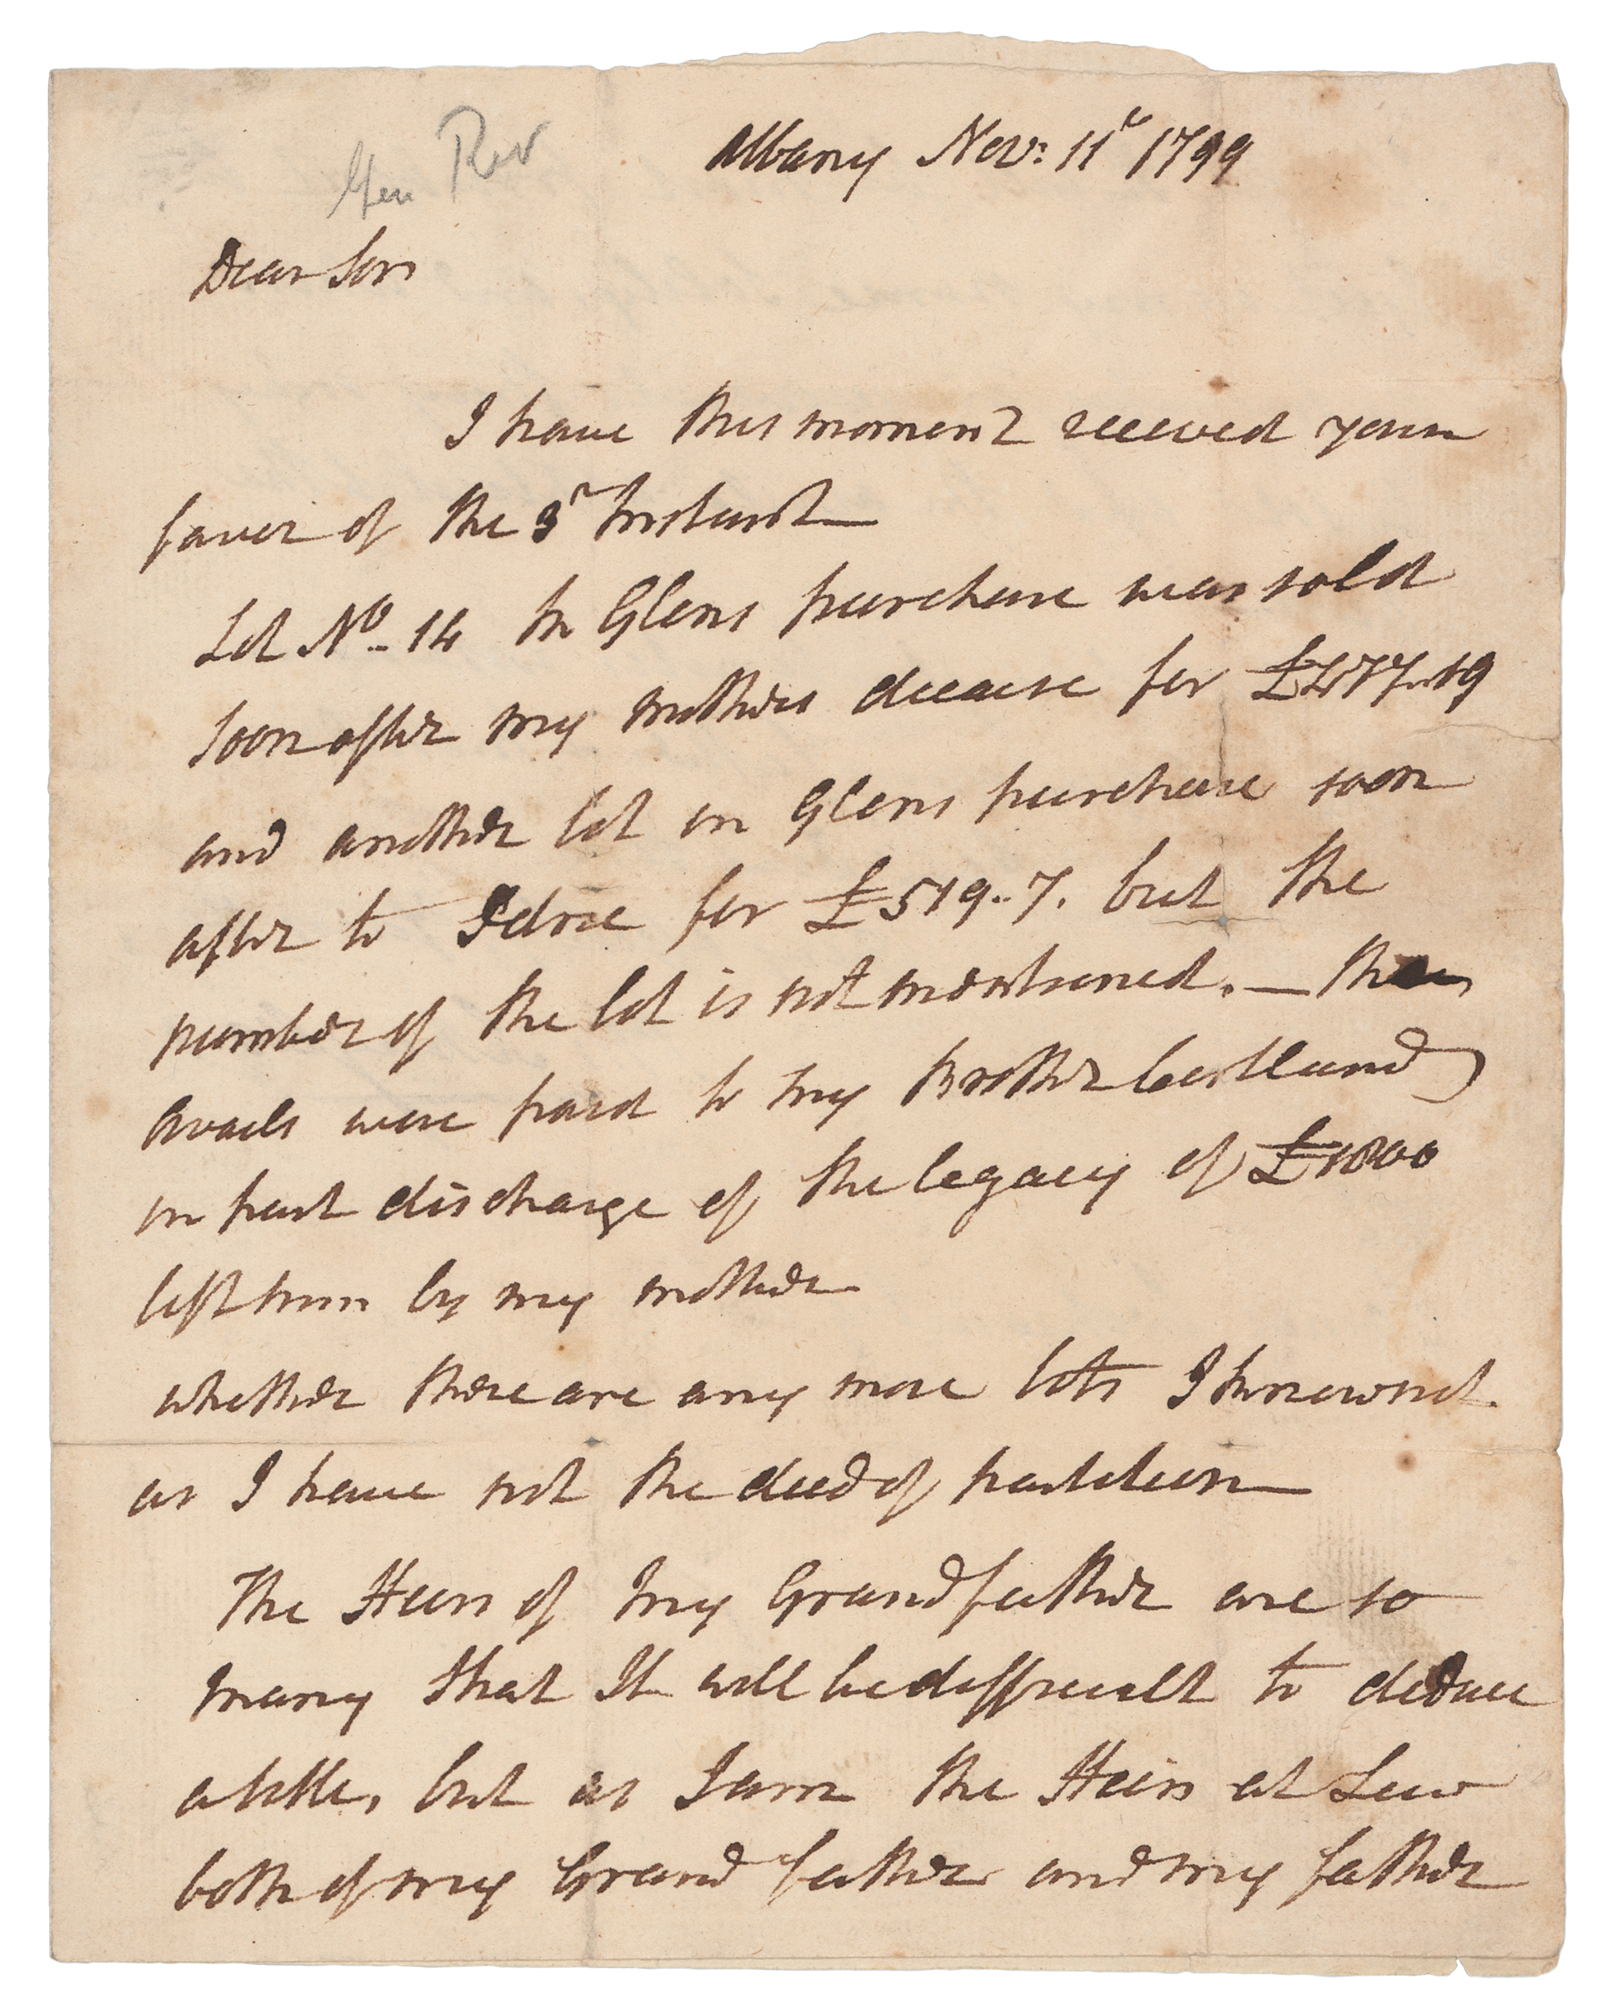 Gen Rev
Albany Nov: 11t 1799
Dear Son
I have this moment received your
favor of the 3r Instant
Lot No. 14 In Glens purchase was sold
soon after my mothers decease for
and another lot in Glens purchase soon
after to for £519..7. but the
number of the lot is not mentioned. — the
avails were paid to my Brother Cortland
in part discharge of the legacy of £1800
left him by my mother
whether there are any more lots I know not
as I have not the deed of partition
The Heirs of my Grandfather are so
many that It will be difficult to deduce
a title, but as I am the Heir at Law
both of my Grand father and my father